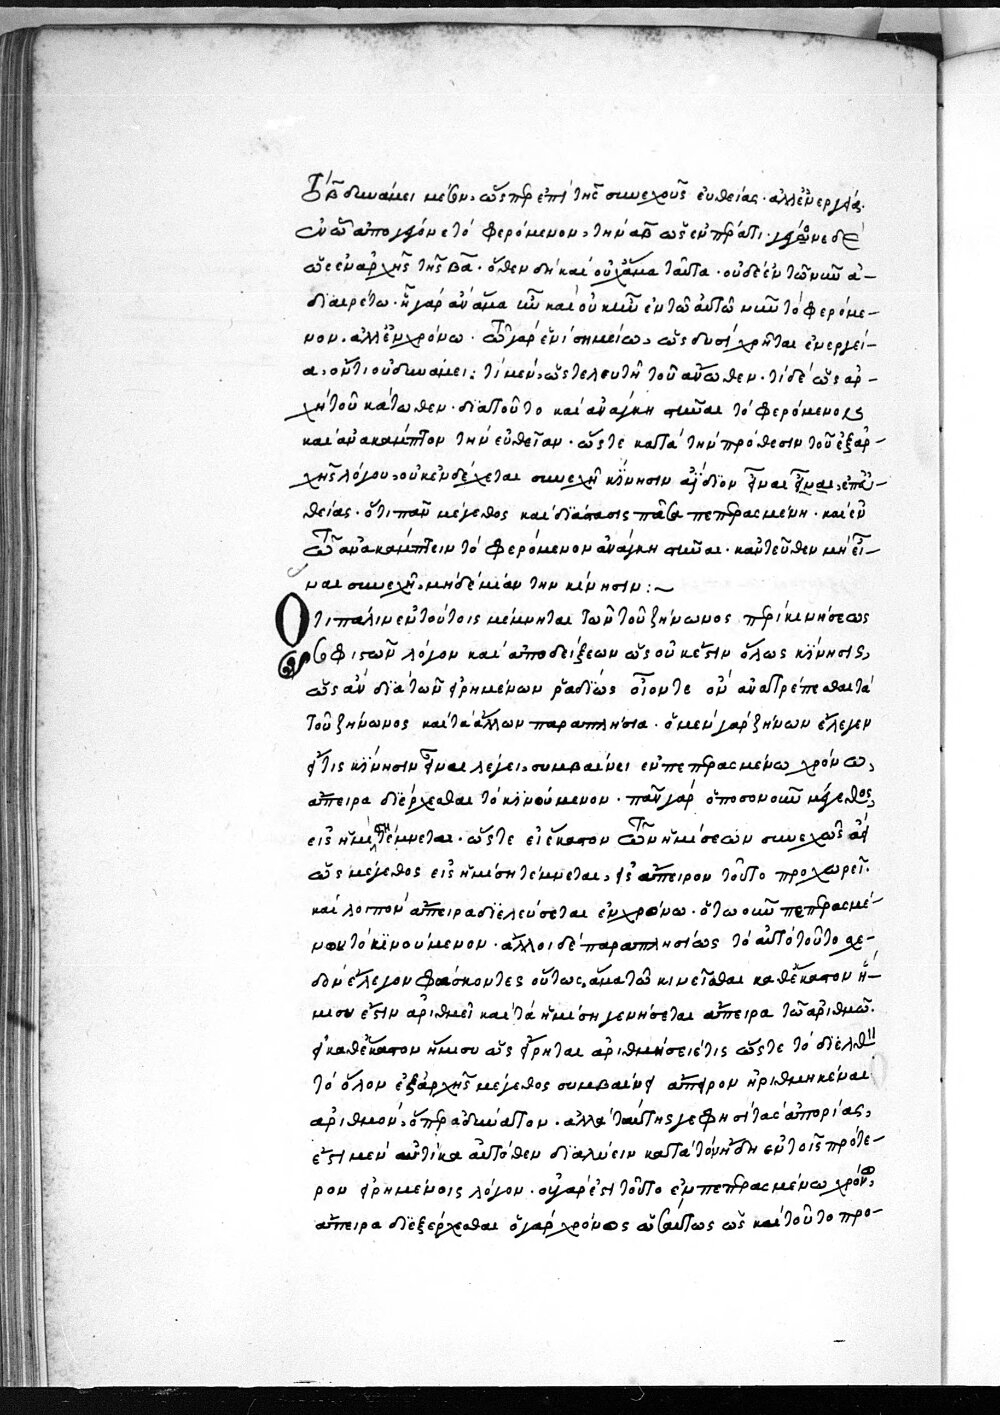 τὸ β δυνάμει μέσον, ὥσπερ ἐπὶ τῆς συνεχοῦς εὐθείας· ἀλλ' ἐνεργείᾳ.
ἐν ᾧ ἀπογέγονε τὸ φερόμενον, τὴν αβ ὡς ἐν πέρατι· γέγονε δὲ
ὡς ἐν ἀρχῆς τῆς βα· ὅθεν δὴ καὶ οὐχ ἅμα ταῦτα· οὐδὲ ἐν τῶ νῦν ἀ-
διαιρέτω· ἦ γὰρ ἂν ἅμα ἦν καὶ οὐκ ἦν ἐν τῶ αὐτῶ νῦν τὸ φερόμε-
νον. ἀλλ' ἐν χρόνω· τῶ γὰρ ἑνὶ σημείω, ὡς δυσὶ χρῆται ἐνεργεί-
α, οὔτι οὐ δυνάμει· τῆ μὲν, ὡς τελευτῆ τοῦ ἄνωθεν· τῆ δὲ ὡς ἀρ-
χῆ τοῦ κάτωθεν· διὰ τοῦτο καὶ ἀνάγκη στῆναι τὸ φερόμενον
καὶ ἀνακάμπτον τὴν εὐθεῖαν· ὥστε κατὰ τὴν πρόθεσιν τοῦ ἐξ ἀρ-
χῆς λόγου, οὐκ ἐνδέχεται συνεχῆ κίνησιν ἀΐδιον εἶναι εἶναι, ἐπ' εὐ-
θείας· ὅτι πᾶν μέγεθος καὶ διάστασις πᾶσα πεπερασμένη· καὶ ἐν
τῶ ἀνακάμπτειν τὸ φερόμενον ἀνάγκη στῆναι· κἀντεῦθεν μὴ εἶ-
ναι συνεχῆ, μηδὲ μίαν τὴν κίνησιν :~
Ὅτι πάλιν ἐν τούτοις μέμνηται τῶν τοῦ ζήνωνος περὶ κινήσεως
σοφισῶν λόγον καὶ ἀποδείξεων ὡς οὐκ ἔστιν ὅλως κίνησις,
ὡς ἂν διὰ τῶν εἰρημένων ῥαδίως οἷόν τε ὂν ἀνατρέπεσθαι τὰ
τοῦ ζήνωνος καὶ τὰ ἄλλων παραπλήσια· ὁ μὲν γὰρ ζήνων ἔλεγεν
εἴ τις κίνησιν εἶναι λέγει, συμβαίνει ἐν πεπερασμένω χρόνω,
ἄπειρα διέρχεσθαι τὸ κινούμενον· πᾶν γὰρ ὁποσονοῦν μέγεθος,
εἰς ἡμίση τέμνεται· ὥστε εἰ ἕκαστον τῶν ἡμίσεων συνεχῶς ἀεὶ
ὡς μέγεθος εἰς ἡμίση τέμνεται, εἰς ἄπειρον τοῦτο προχωρεῖ.
καὶ λοιπὸν ἄπειρα διελεύσεται ἐν χρόνω· ὁτωοῦν πεπερασμέ-
νω τὸ κινούμενον· ἄλλοι δὲ παραπλησίως τὸ αὐτὸ τοῦτο σχε-
δὸν ἔλεγον φάσκοντες οὕτως, ἅμα τῶ κινεῖσθαι καθ' ἕκαστον ἥ-
μισυ ἔστιν ἀριθμεῖ καὶ τὰ ἡμίση γενήσεται ἄπειρα τῶ ἀριθμῶ.
εἰ καθ' ἕκαστον ἥμισυ ὡς εἴρηται ἀριθμήσειέ τις ὥστε τὸ διελθεῖν
τὸ ὅλον ἐξ ἀρχῆς μέγεθος συμβαίνει ἄπειρον ἠριθμηκέναι
ἀριθμὸν, ὅπερ ἀδύνατον· ἀλλὰ ταύτης γέ φησι τὰς ἀπορίας,
ἔστι μὲν αὐτίκα αὐτόθεν διαλύειν κατὰ τὸν ἤδη ἐν τοῖς πρότε-
ρον εἰρημένοις λόγον· οὐ γὰρ ἔστι τοῦτο ἐν πεπερασμένω χρόνω,
ἄπειρα διεξέρχεσθαι ὁ γὰρ χρόνος ὡσαύτως ὡς καὶ τοῦτο προ-